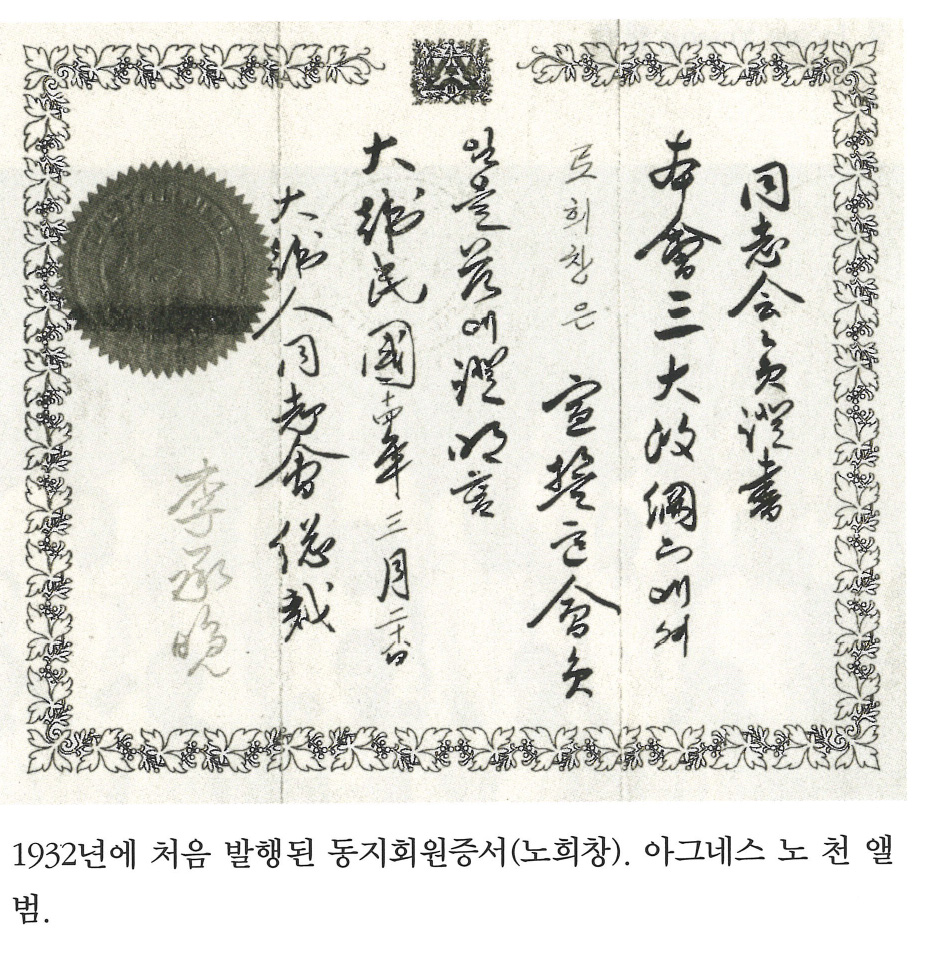 同志会員證書
本會三大政綱下에서
로희창은 宣誓한會員
임을玆에證明
大韓民國十四年三月二十日
大韓人同志會總裁
李承晩
1932년에 처음 발행된 동지회원증서(노희창). 아그네스 노 천 앨
범.